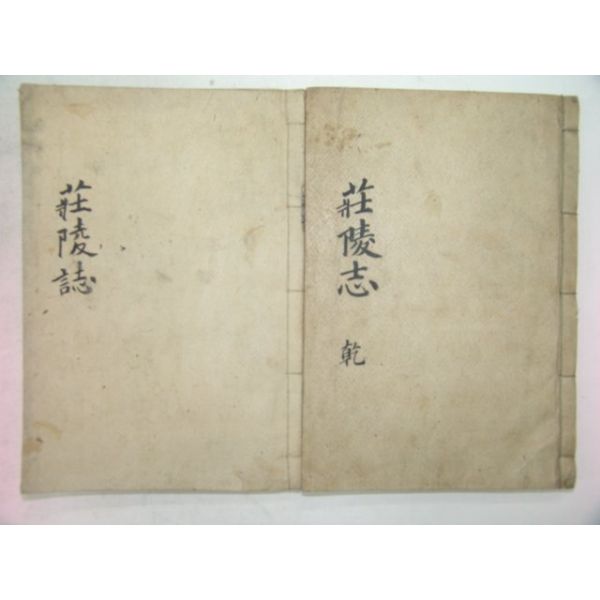 莊陵志
乾
莊陵誌